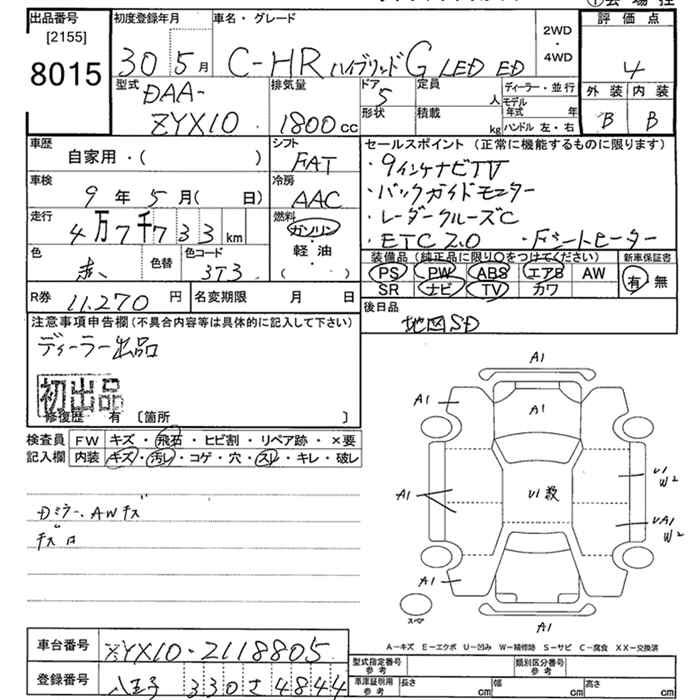 出品番号 初度登録年月 車名・グレード 評価点
[2155]
8015
30 5月 C-HR ハイブリッド G LED ED 2WD・4WD 4
型式 排気量 ドア 定員 ディーラー・並行 外装 内装
DAA- 5 人 モデル年式 年
ZYX10 1800cc 形状 積載 kg ハンドル 左・右 B B
車歴 シフト セールスポイント(正常に機能するものに限ります)
自家用・( ) FAT ・9インチナビTV
車検 冷房 ・バックガイドモニター
9年 5月( 日) AAC ・レーダークルーズC
走行 燃料 ・ETC2.0 ・シートヒーター
4万7千733km ガソリン・軽油
色 色替 色コード ( )
赤 3T3
装備品(純正品に限り○をつけてください) 新車保証書
PS PW ABS エアB AW 有・無
SR ナビ TV カワ
R券 11,270円 名変期限 月 日 後日品
地図SD
注意事項申告欄(不具合内容等は具体的に記入して下さい)
ディーラー出品
初出品
修復歴 有 [箇所 ]
検査員 FW キズ・飛石・ヒビ割・リペア跡・×要
記入欄 内装 キズ・汚レ・コゲ・穴・スレ・キレ・破レ
Dミラー、AWキズ
A1
A1
A1
A1
U1数
U1
W2
UA1
W2
A1
A1
スペア
A-キズ E-エクボ U-凹み W-補修跡 S-サビ C-腐食 XX-交換済
車台番号 ZYX10-2118805
登録番号 八王子 330さ4844
型式指定番号 参考 類別区分番号 参考
車庫証明用 参考 長さ cm 幅 cm 高さ cm